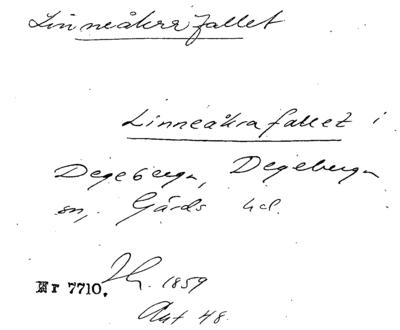 Linneåkrafallet
Linneåkrafallet i
Degeberga, Degeberga
sn, Gärds hd.
Nr 7710.
1859
Ant 48.